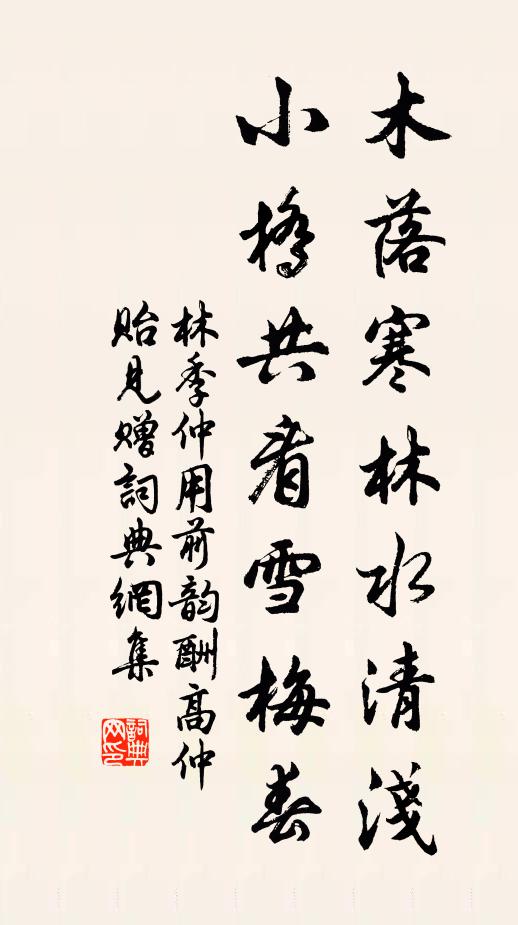 木落寒林水清淺
小橋共看雪梅春
林季仲用前韵酬高仲
貽見贈詞典網集
詞典網印